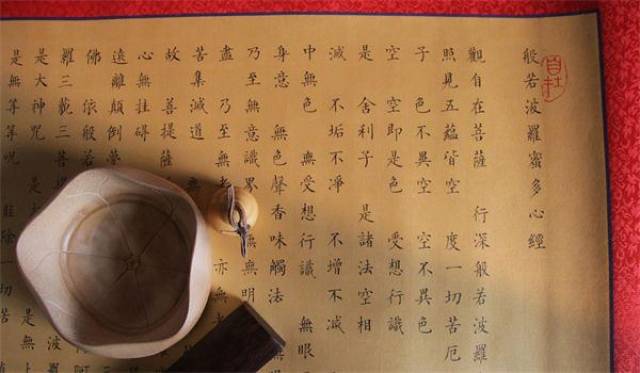 般若波羅蜜多心經
觀自在菩薩 行深般若波羅
照見五蘊皆空 度一切苦厄
子 色不異空 空不異色
空 空即是色 受想行識
是 舍利子 是諸法空相
滅 不垢不凈 不增不减
中無色 無受想行識 無眼
身意 無色聲香味觸法
乃至無意識界 無無明
盡 乃至無老 亦無老
苦集滅道 無
故 菩提薩
心無挂礙
遠離顛倒夢
佛 依般若
羅三藐三菩 是無上
是大神咒 是大
是無等等呪 能除一切苦